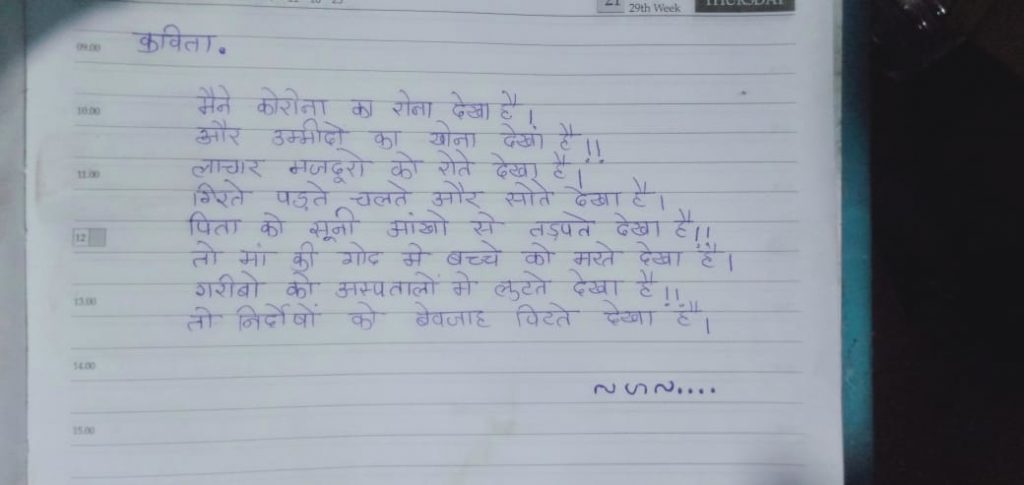 21
29th Week
THURSDAY
09.00
कविता.
10.00
मैने कोरोना का रोना देखा है।
और उम्मीदो का खोना देखा है!!
11.00
लाचार मजदूरो को रोते देखा है।
गिरते पड़ते चलते और सोते देखा है।
12
पिता को सूनी आंखो से तड़पते देखा है!!
तो मां की गोद मे बच्चे को मरते देखा है।
13.00
गरीबो को अस्पतालों मे लुटते देखा है!!
तो निर्दोषों को बेवजाह पिटते देखा है।
14.00
15.00